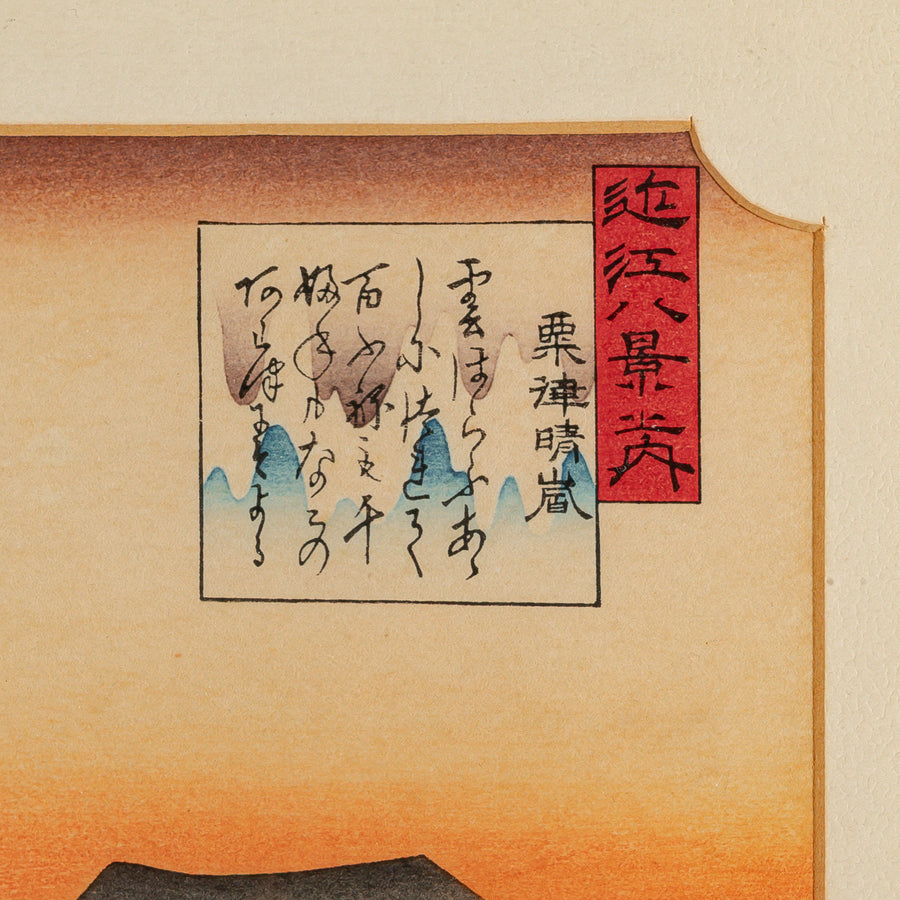 近江八景之内
粟津晴嵐
雲はらふあら
しにつれて
百ふねも千
ふねもなみの
あは津にそよる